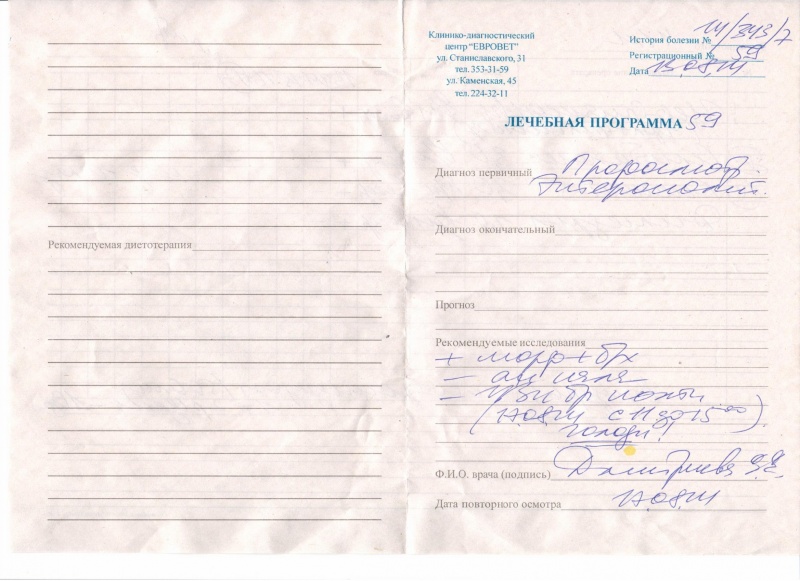 Рекомендуемая диетотерапия
Клинико-диагностический
центр "ЕВРОВЕТ"
ул. Станиславского, 31
тел. 353-31-59
ул. Каменская, 45
тел. 224-32-11
История болезни № 14/343/7
Регистрационный № 59
Дата 13.08.14
ЛЕЧЕБНАЯ ПРОГРАММА 59
Диагноз первичный Профосмотр.
Диагноз окончательный
Прогноз
Рекомендуемые исследования
+ морф + б/х
(17.08.14 с 11 до 15 00).
голодн!
Ф.И.О. врача (подпись) Дмитриева
Дата повторного осмотра 17.08.14